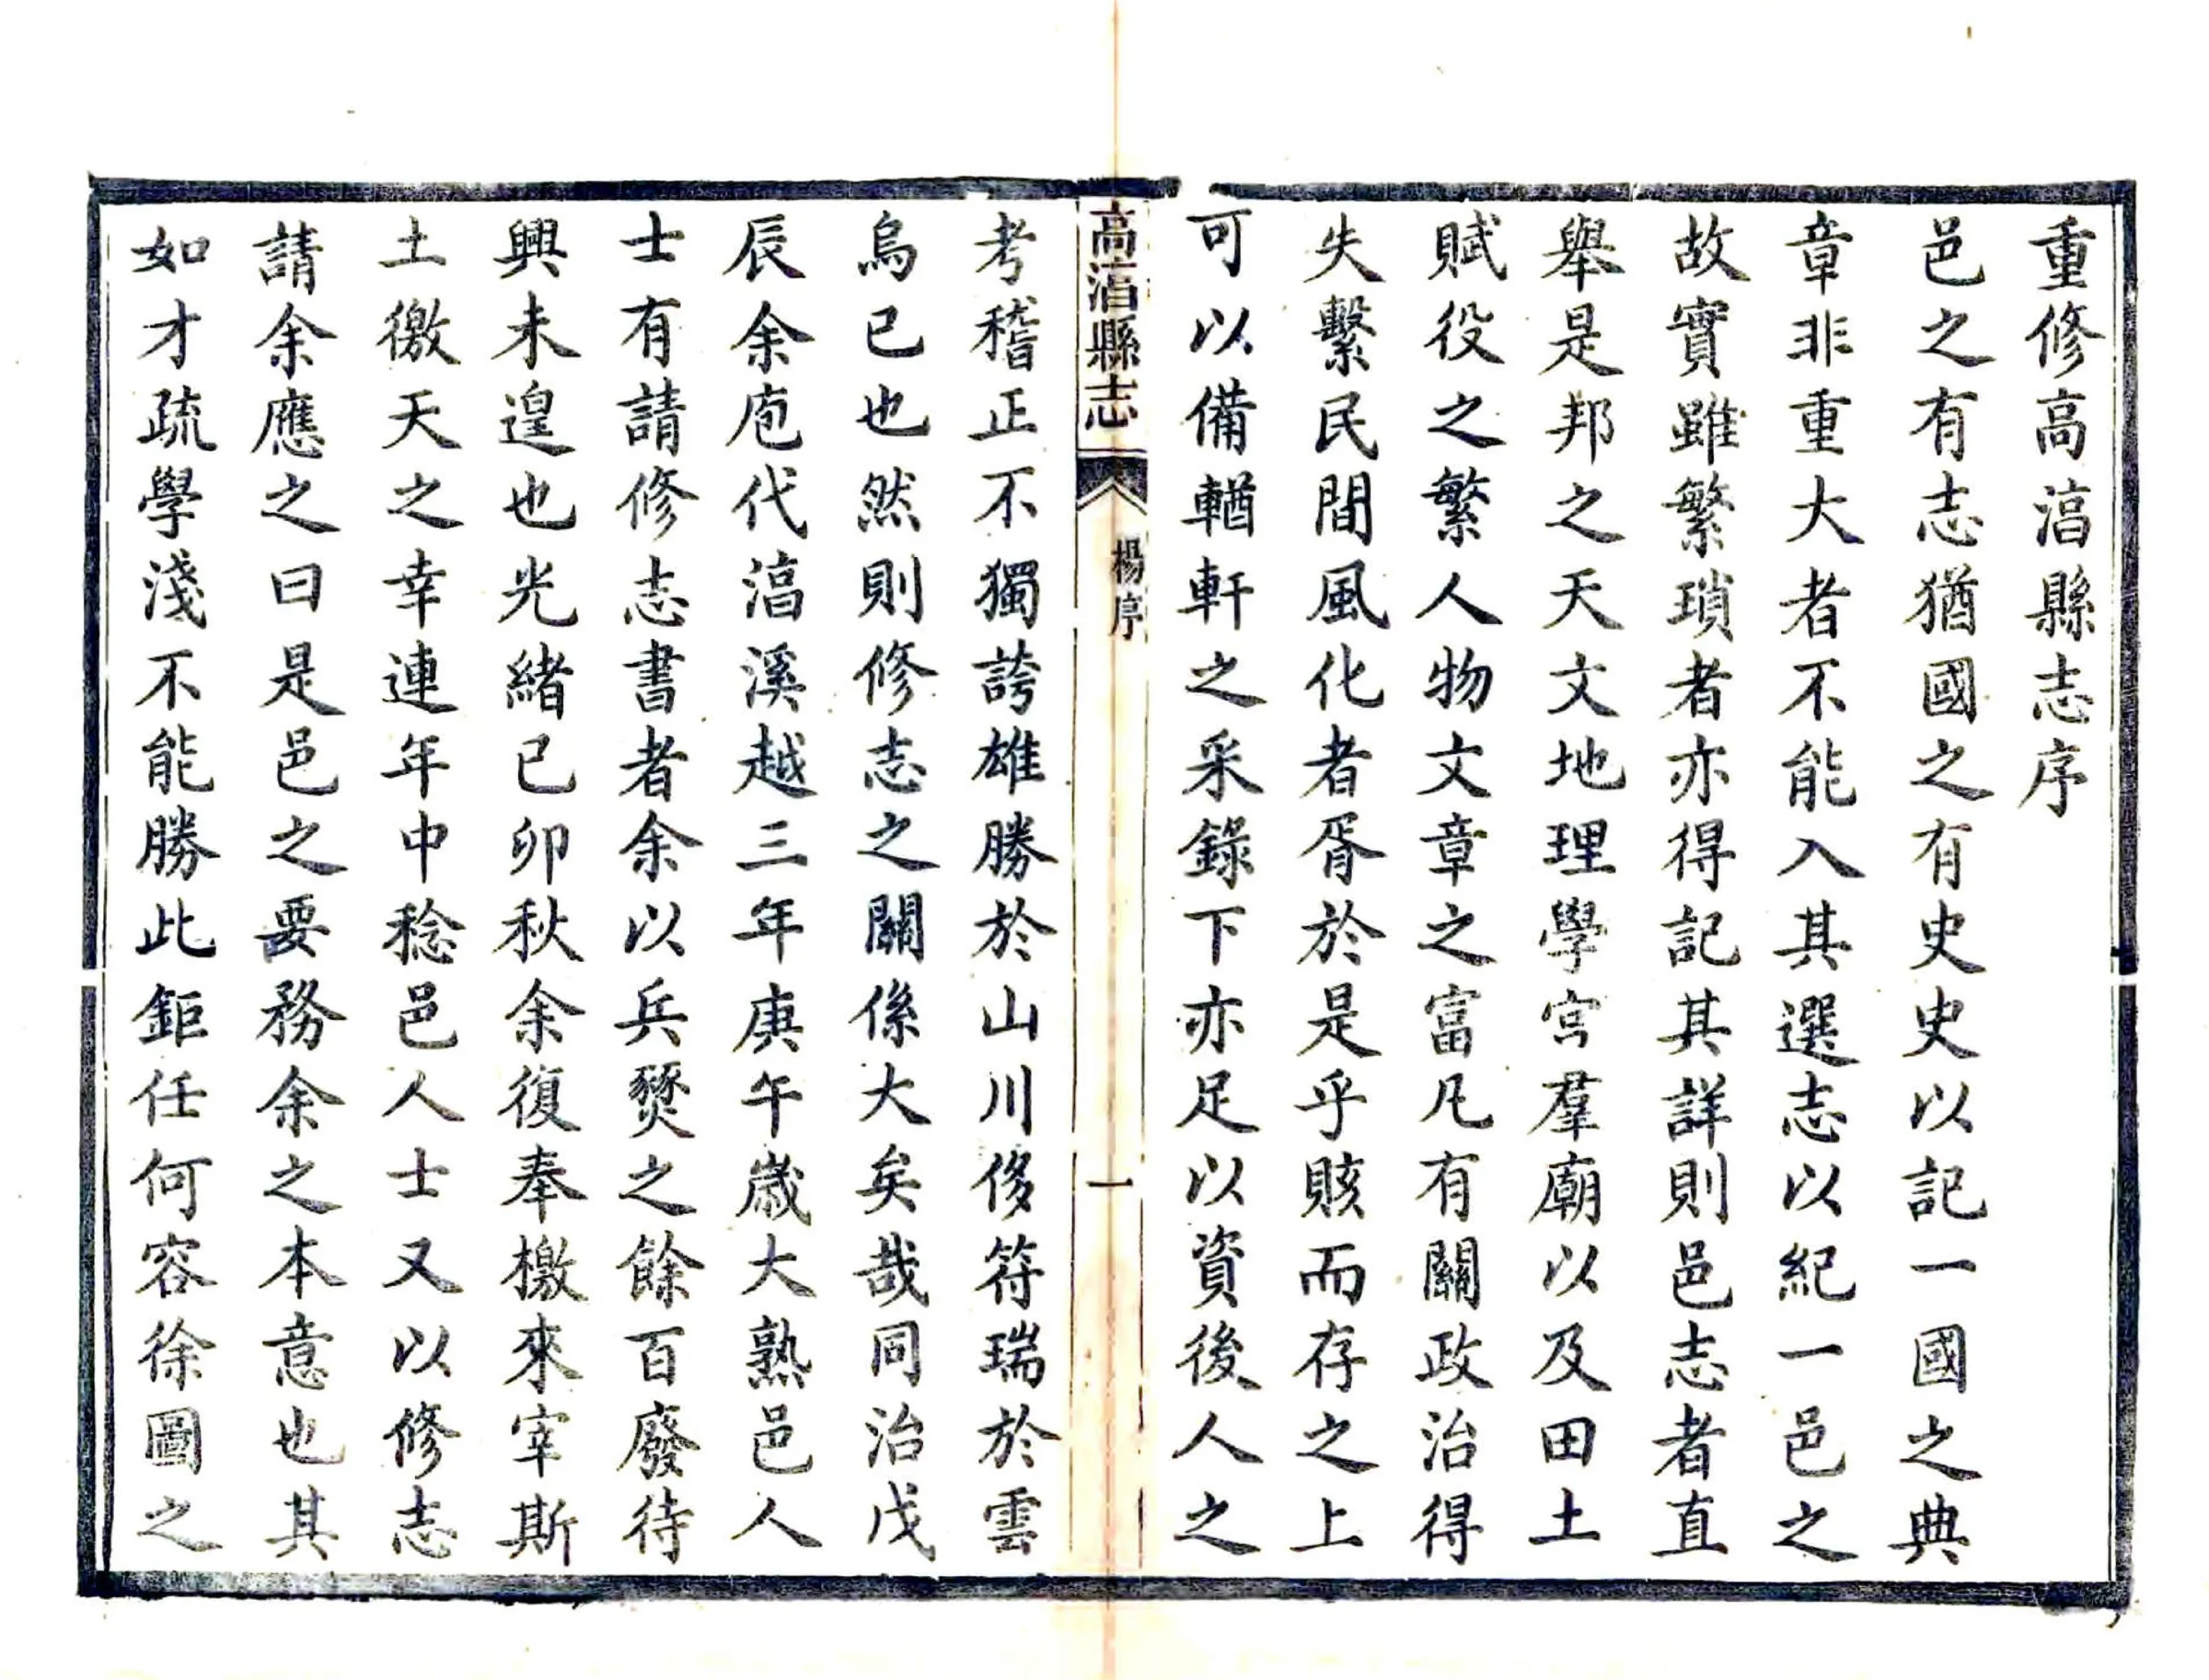 重修高淯縣志序
邑之有志猶國之有史史以記一國之典
章非重大者不能入其選志以紀一邑之
故實雖繁瑣者亦得記其詳則邑志者直
舉是邦之天文地理學宮羣廟以及田土
賦役之繁人物文章之富凡有關政治得
失繫民間風化者胥於是乎賅而存之上
可以備輶軒之采錄下亦足以資後人之
高淯縣志
楊序
一
考稽正不獨誇雄勝於山川侈符瑞於雲
烏已也然則修志之關係大矣哉同治戊
辰余庖代淯溪越三年庚午歲大熟邑人
士有請修志書者余以兵燹之餘百廢待
興未遑也光緒已卯秋余復奉檄來宰斯
土徼天之幸連年中稔邑人士又以修志
請余應之曰是邑之要務余之本意也其
如才疏學淺不能勝此鉅任何容徐圖之